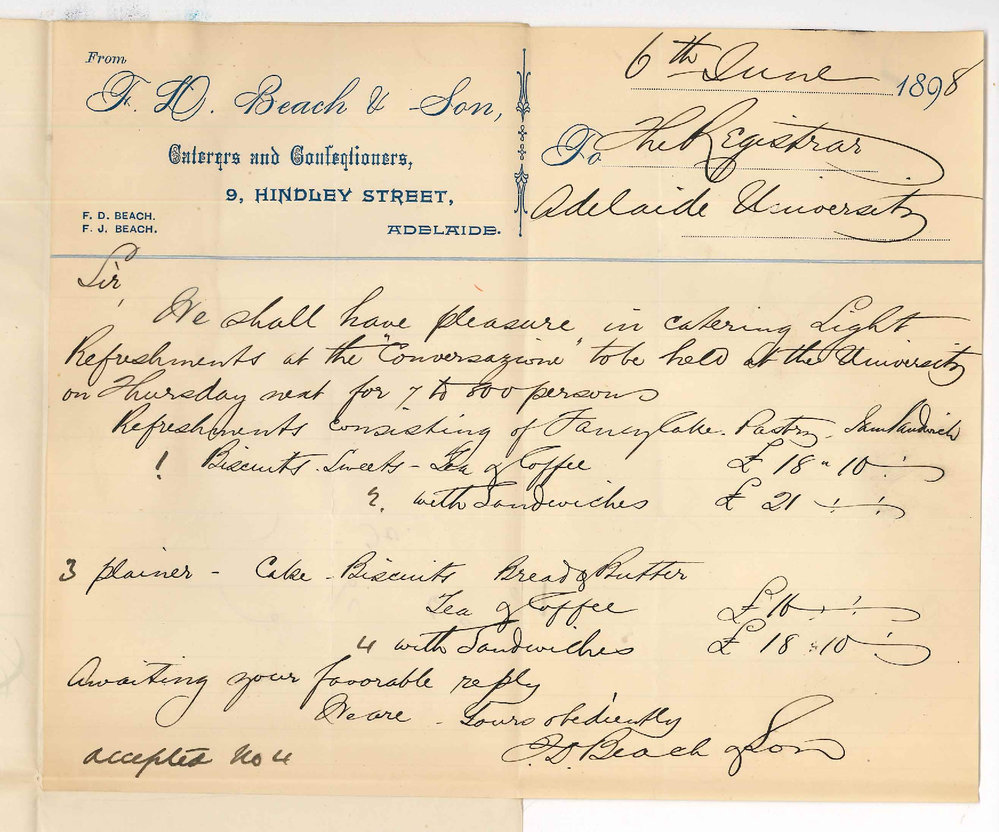 From
F. D. Beach & Son,
Caterers and Confectioners,
9, HINDLEY STREET,
F. D. BEACH.
F. J. BEACH.
ADELAIDE.
6th June 1898
To The Registrar
Adelaide University
Sir,
We shall have pleasure in catering Light
Refreshments at the "Conversazione" to be held at the University
on Thursday next for 7 to 800 persons
Refreshments consisting of Fancy Cake. Pastry. Jam Sandwich
1 Biscuits. Sweets - Tea & Coffee £ 18 " 10 :
2. with Sandwiches £ 21 : :
3 plainer - Cake - Biscuits Bread & Butter
Tea & Coffee £ 16 : :
4 with Sandwiches £ 18 : 10 :
Awaiting your favorable reply
We are - Yours obediently
F. D. Beach & Son
accepted No 4